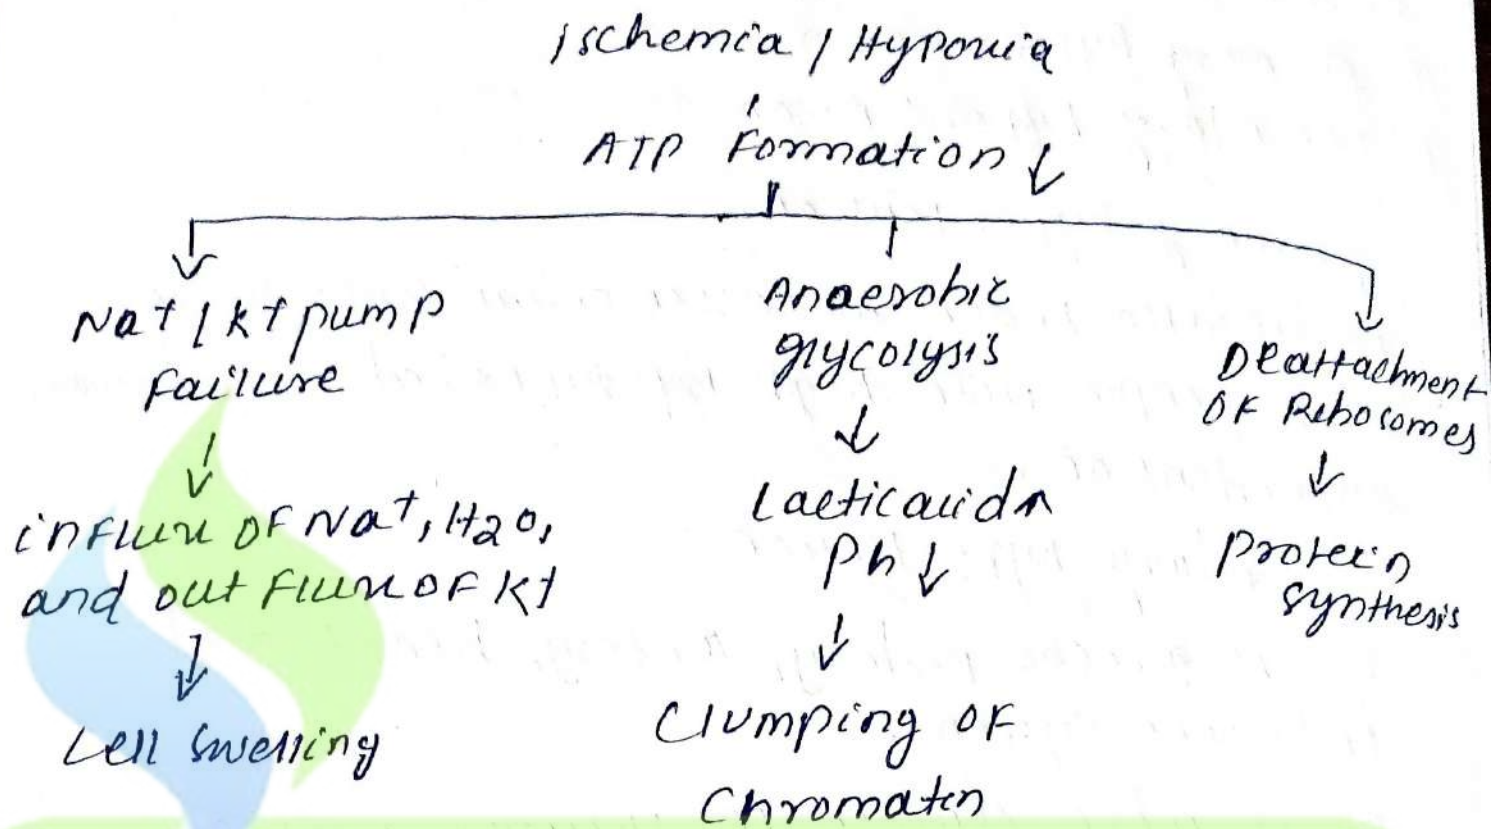 Ischemia / Hypoxia
ATP Formation ↓
Na+ / K+ pump
failure
↓
influx of Na+, H2O,
and out flux of K+
↓
Cell swelling
Anaerobic
glycolysis
↓
Lactic acid ↑
Ph ↓
↓
Clumping of
Chromatin
Deattachment
of Ribosomes
↓
protein
synthesis